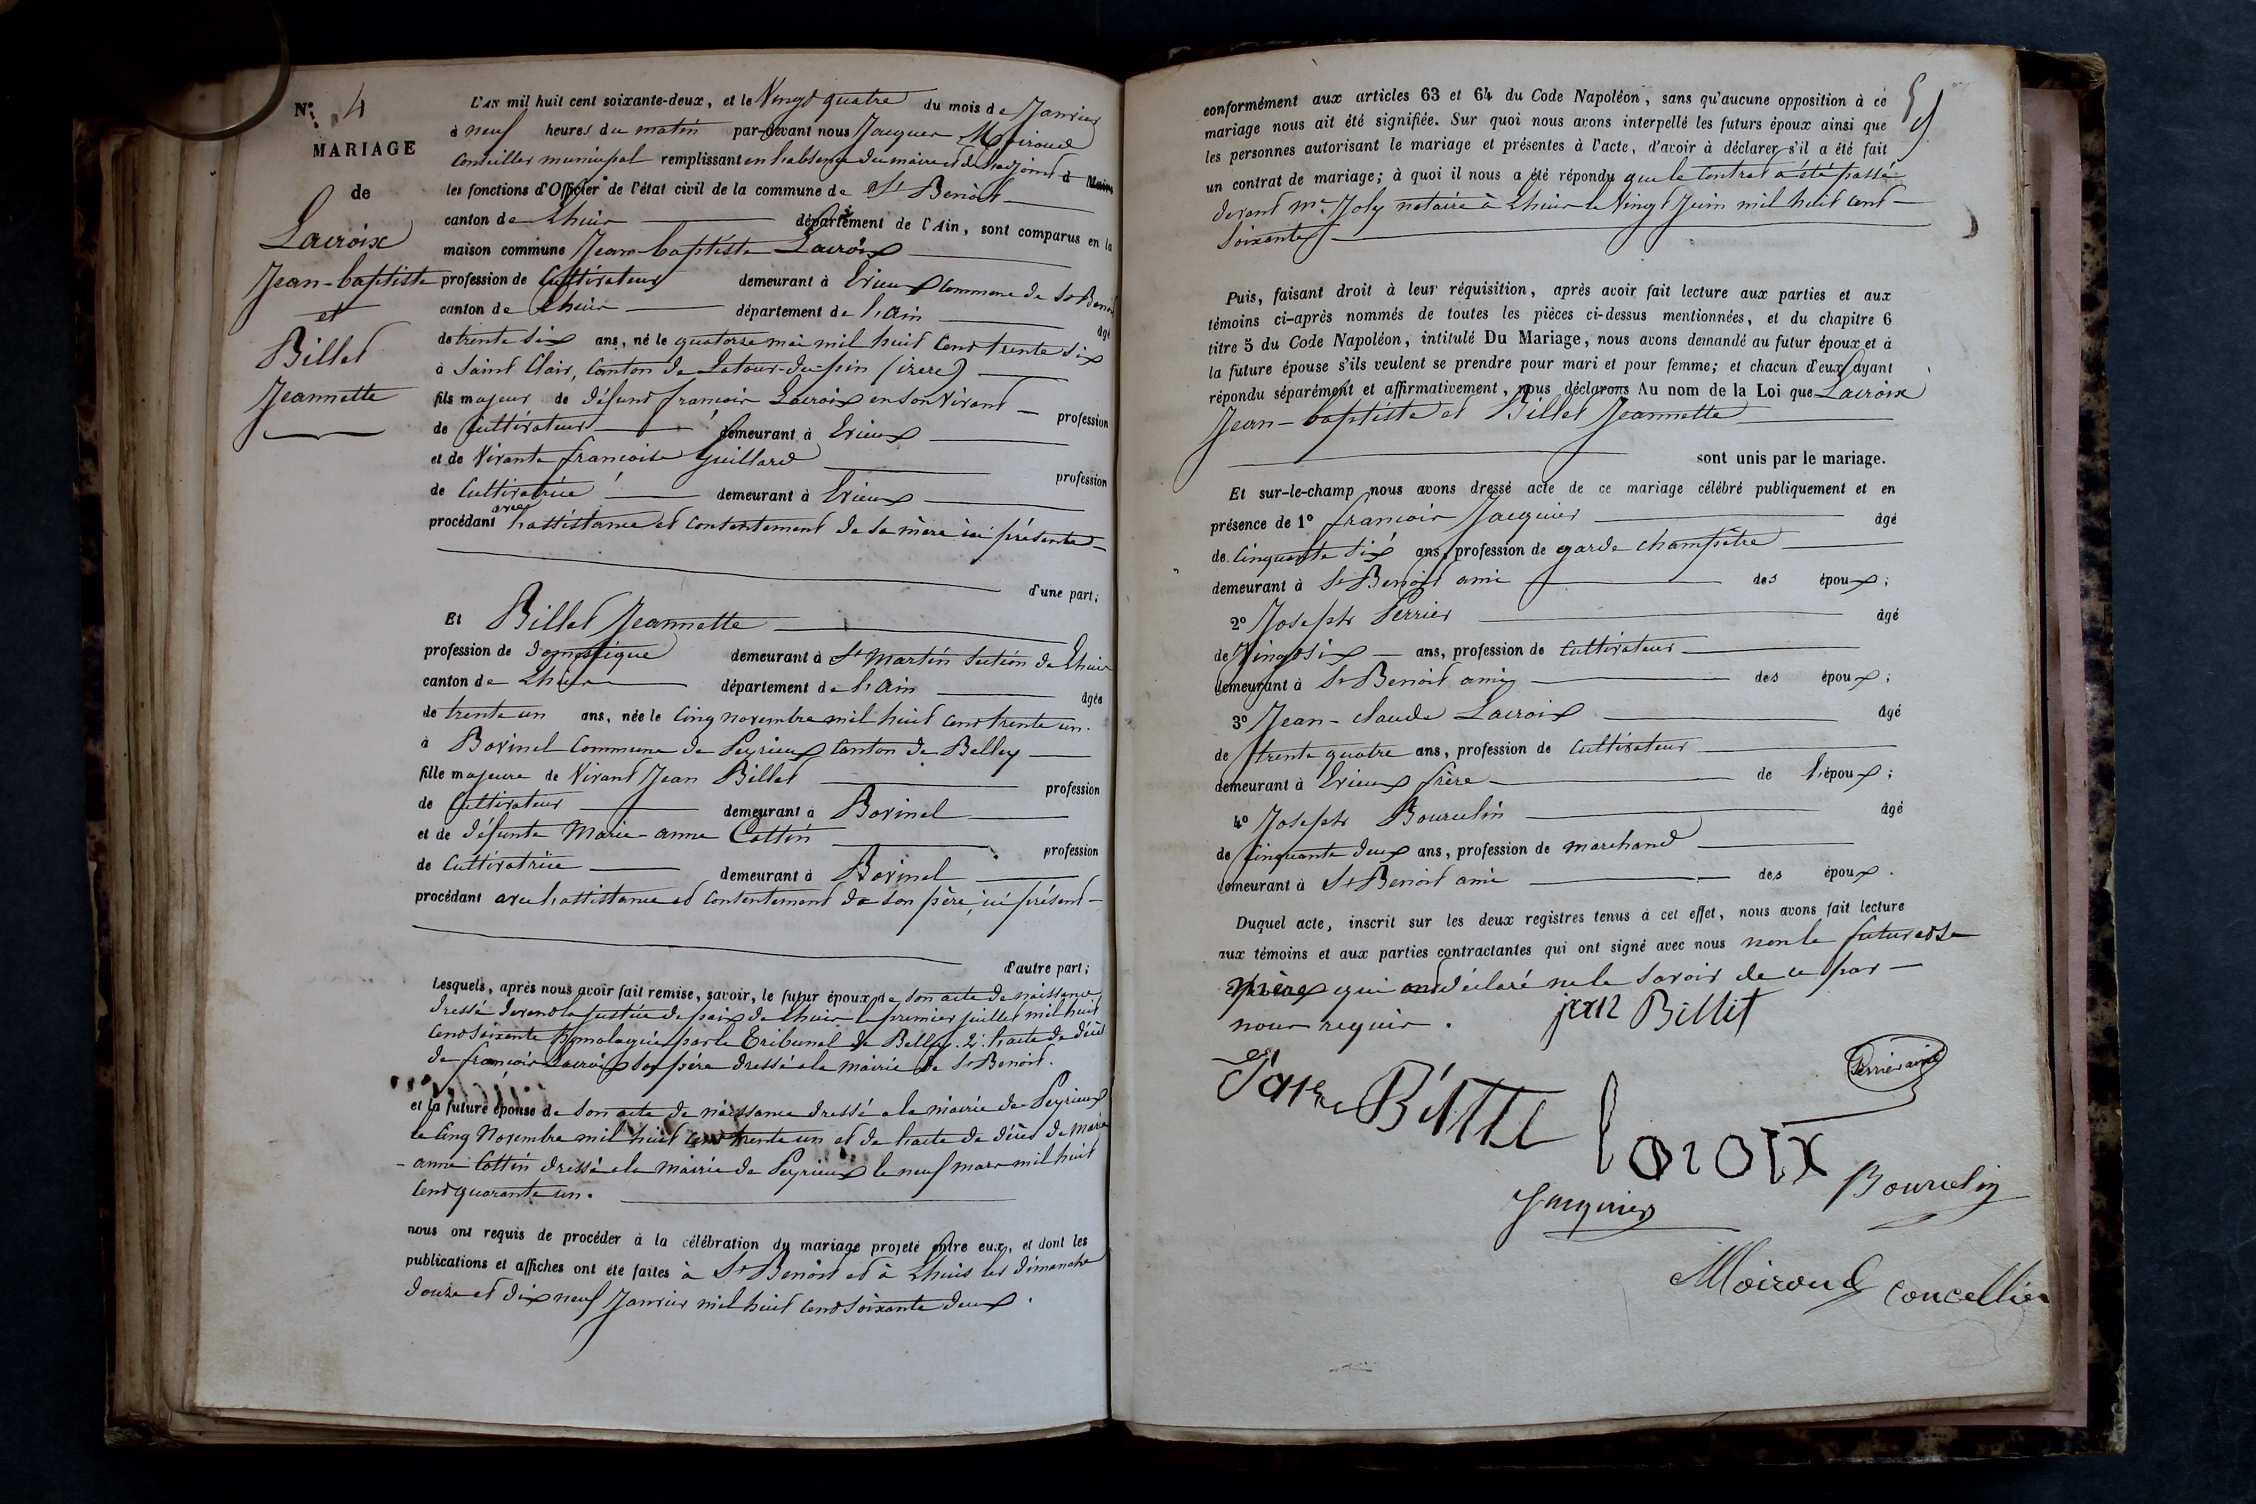 N° 4
MARIAGE
de
Lacroix
Jean-baptiste
et
Billet
Jeannette
L'AN mil huit cent soixante-deux, et le Vingt quatre du mois de Janvier
à neuf heures du matin par-devant nous Jacques Moiroud
Conseiller municipal remplissant en l'absence du maire et de l'adjoint
les fonctions d'Officier de l'état civil de la commune de St Benoit
canton de Lhuis département de l'Ain, sont comparus en la
maison commune Jean-baptiste Lacroix
profession de Cultivateur demeurant à Evieux Commune de St Benoit
canton de Lhuis département de l'ain âgé
de trente six ans, né le quatorze mai mil huit cent trente six
à Saint Clair, Canton de Latour-du-pin (izere)
fils majeur de défunt françois Lacroix en son vivant profession
de Cultivateur demeurant à Evieux
et de Vivante francoise Guillard profession
de Cultivatrice demeurant à Evieux
procédant avec l'assistance et consentement de sa mère ici présente
d'une part;
Et Billet Jeannette
profession de domestique demeurant à St Martin section de Lhuis
canton de Lhuis département de l'Ain âgée
de trente un ans, née le Cinq novembre mil huit cent trente un.
à Bovinel Commune de Peyrieux Canton de Belley
fille majeure de Vivant Jean Billet profession
de Cultivateur demeurant à Bovinel
et de défunte Marie-anne Cottin profession
de Cultivatrice demeurant à Bovinel
procédant avec l'assistance et consentement de son père, ici présent
d'autre part;
Lesquels, après nous avoir fait remise, savoir, le futur époux, de son acte de naissance
dressé devant la justice de paix de Lhuis le premier juillet mil huit
cent soixante homologué par le Tribunal de Belley. 2° l'acte de décès
de françois Lacroix son père dressé à la mairie de St Benoit.
et la future épouse de son acte de naissance dressé à la mairie de Peyrieux
le Cinq Novembre mil huit cent trente un et de l'acte de décès de marie
-anne Cottin dressé à la mairie de Peyrieux le neuf mars mil huit
cent quarante un.
nous ont requis de procéder à la célébration du mariage projeté entre eux, et dont les
publications et affiches ont été faites à St Benoit et à Lhuis les dimanche
douze et dix neuf Janvier mil huit cent soixante deux.
conformément aux articles 63 et 64 du Code Napoléon, sans qu'aucune opposition à ce
mariage nous ait été signifiée. Sur quoi nous avons interpellé les futurs époux ainsi que
les personnes autorisant le mariage et présentes à l'acte, d'avoir à déclarer s'il a été fait
un contrat de mariage; à quoi il nous a été répondu que le Contrat a été passé
devant me Joly notaire à Lhuis le Vingt Juin mil huit cent
soixante
Puis, faisant droit à leur réquisition, après avoir fait lecture aux parties et aux
témoins ci-après nommés de toutes les pièces ci-dessus mentionnées, et du chapitre 6
titre 5 du Code Napoléon, intitulé Du Mariage, nous avons demandé au futur époux et à
la future épouse s'ils veulent se prendre pour mari et pour femme; et chacun d'eux ayant
répondu séparément et affirmativement, nous déclarons Au nom de la Loi que Lacroix
Jean-baptiste et Billet Jeannette
sont unis par le mariage.
Et sur-le-champ nous avons dressé acte de ce mariage célébré publiquement et en
présence de 1° françois Jacquier âgé
de Cinquante six ans, profession de garde champêtre
demeurant à St Benoit ami des époux;
2° Joseph Perrier âgé
de Vingt six ans, profession de Cultivateur
demeurant à St Benoit ami des époux;
3° Jean-claude Lacroix âgé
de trente quatre ans, profession de Cultivateur
demeurant à Evieux frère de l'époux;
4° Joseph Bourcelin âgé
de Cinquante deux ans, profession de marchand
demeurant à St Benoit ami des époux.
Duquel acte, inscrit sur les deux registres tenus à cet effet, nous avons fait lecture
aux témoins et aux parties contractantes qui ont signé avec nous non le futur et sa
mère qui ont déclaré ne le savoir de ce par
nous requis.
jean Billet
Perrier ainé
Jane Billet
lacroix
Jacquier
Bourcelin
Moiroud Concellier